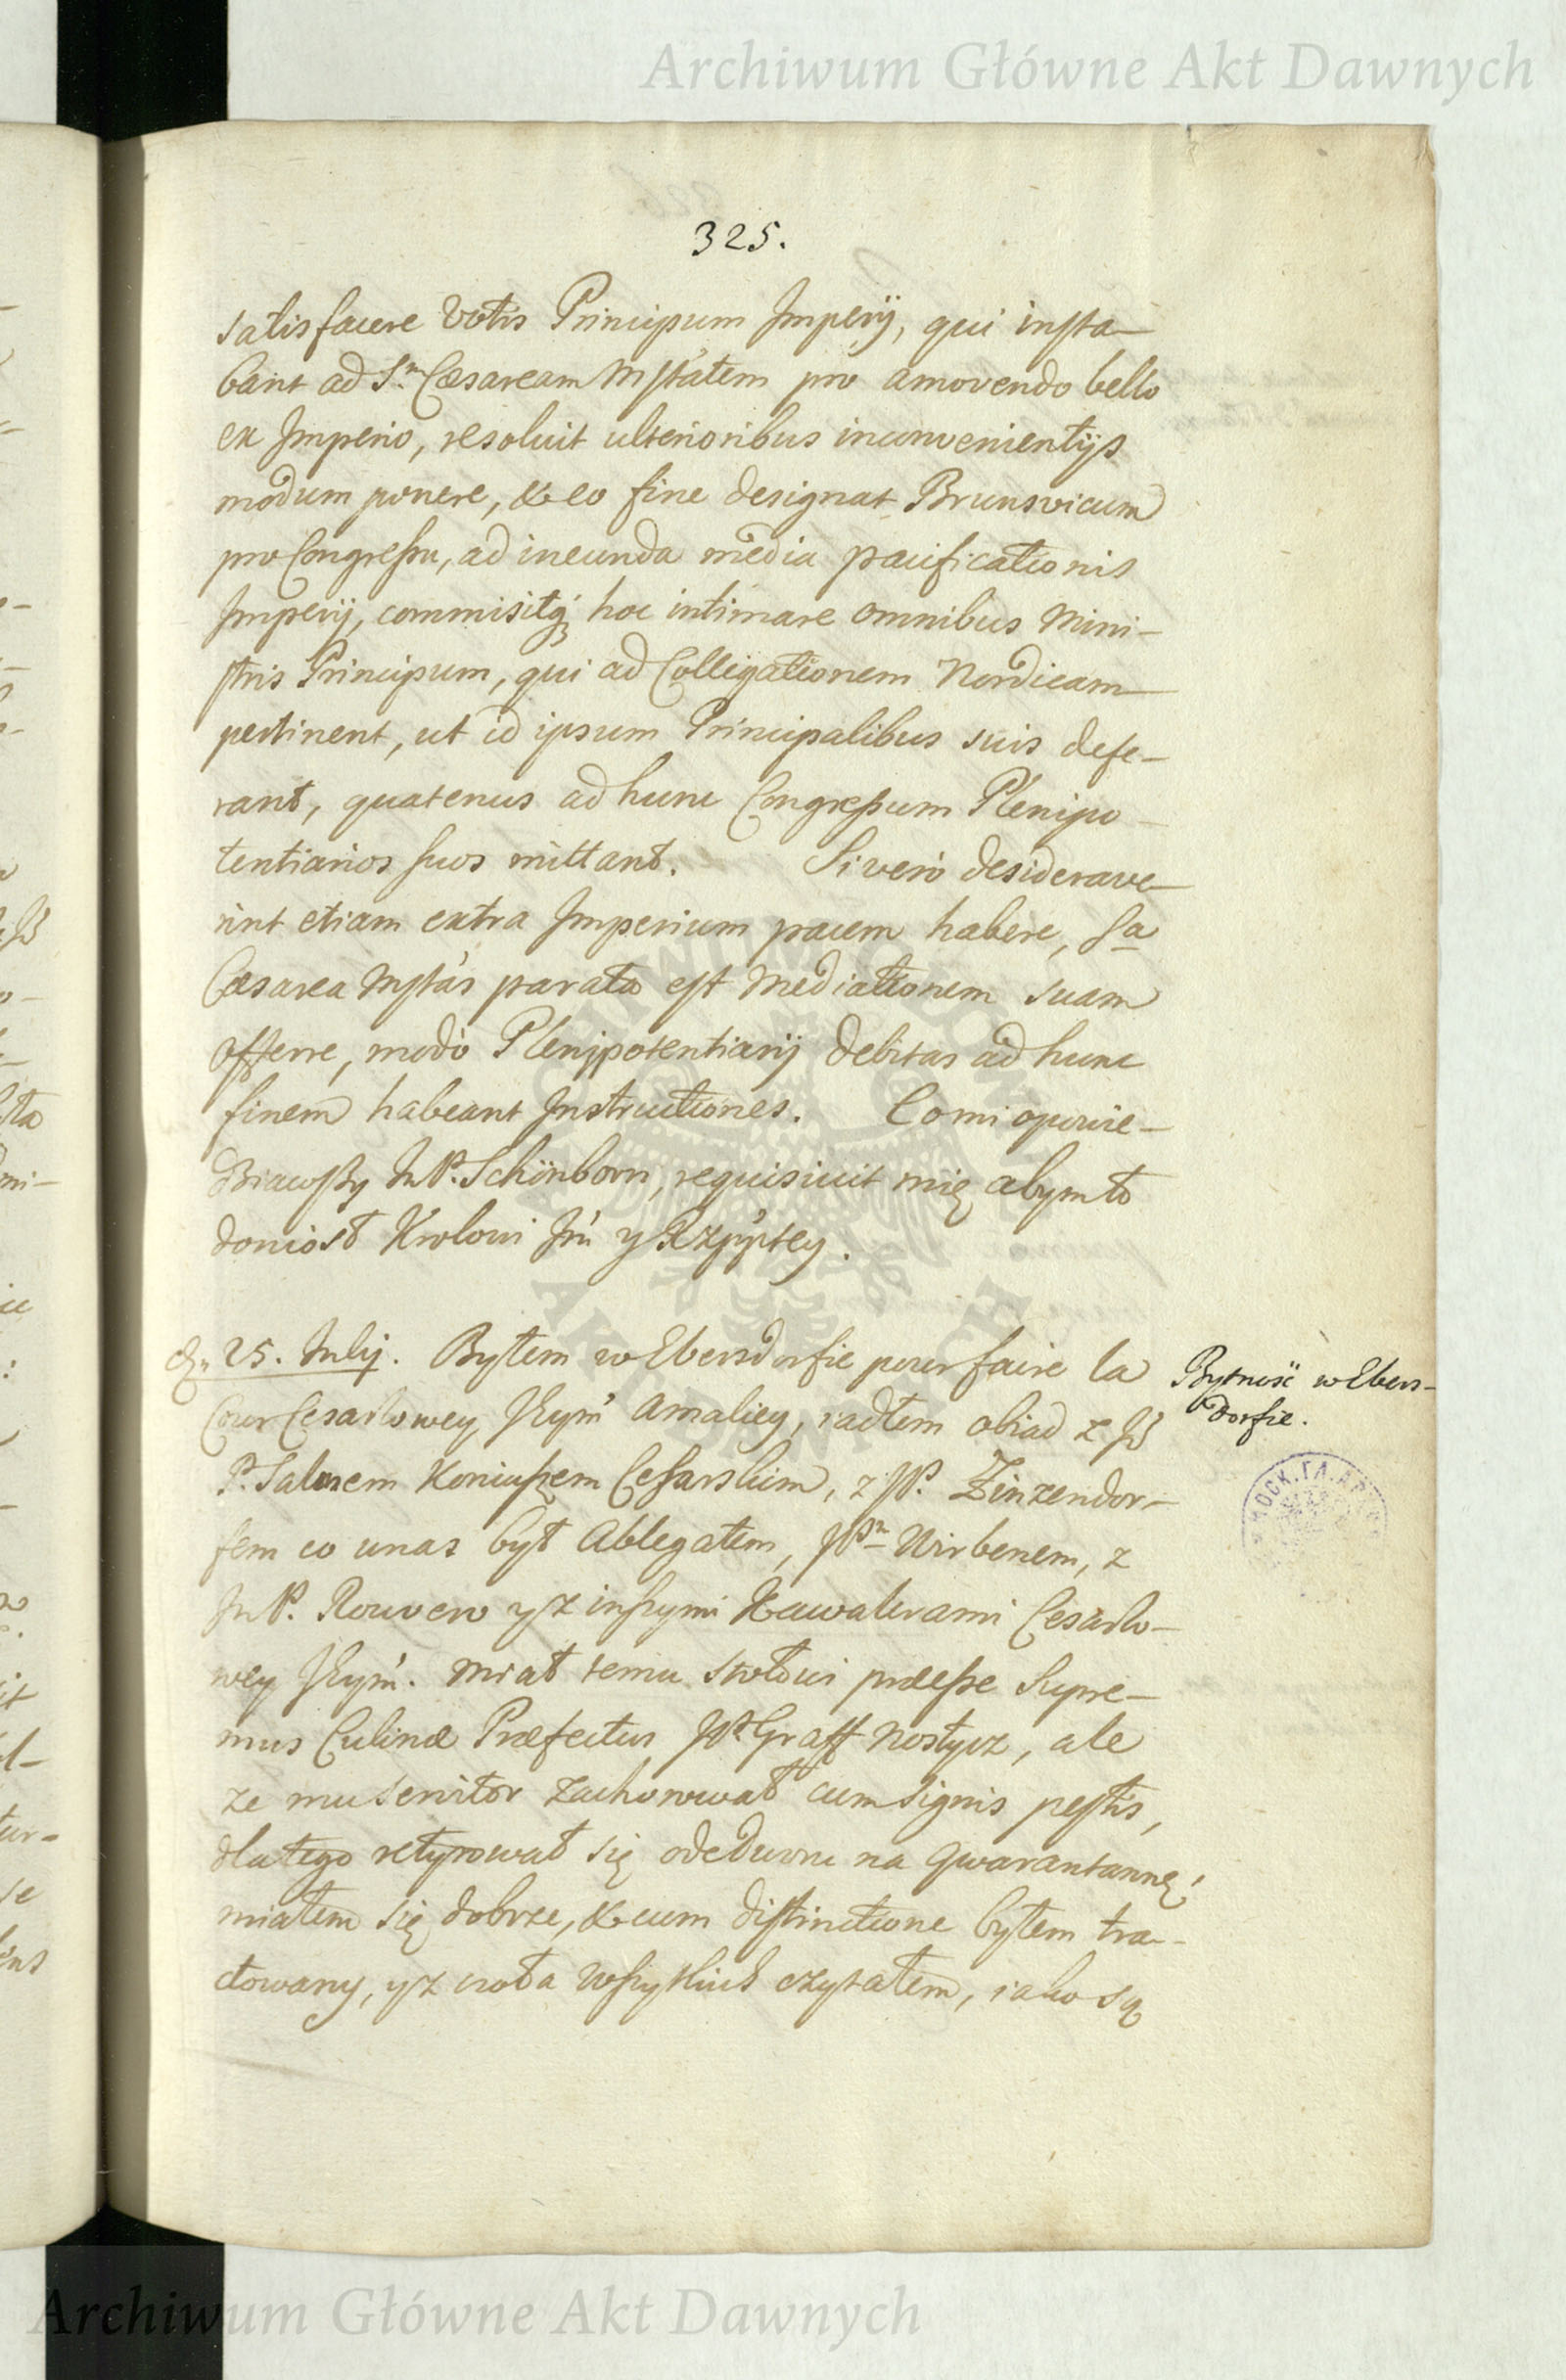 Archiwum Główne Akt Dawnych
325.
satisfacere Votis Principum Imperij, qui insta-
bant ad S.m Caesaream Mstátem pro amovendo bello
ex Imperio, resoluit ulterioribus inconvenientijs
modum ponere, & eo fine designat Brunsvicum
pro Congressu, ad ineunda media pacificationis
Imperij, commisitq́ hoc intimare omnibus Mini-
stris Principum, qui ad Colligationem Nordicam
pertinent, ut id ipsum Principalibus suis defe-
rant, quatenus ad hunc Congressum Plenipo-
tentiarios suos mittant. Si verò desiderave-
rint etiam extra Imperium pacem habere, Sa
Caesarea Mstás parata est Mediationem suam
offerre, modò Plenipotentiarij debitas ad hunc
finem habeant Instructiones. Co mi opowie-
dziawszy JnP. Schönborn, requisiuit mię abym to
doniósł Krolowi Jm̃ y Rzpptey.
Dn 25. Julij. Byłem w Ebersdorfie pour faire la
Cour Cesarzowey Jeym̃ Amaliey, iadłem obiad z J
P. Salmem Koniuszem Cesarskim, z JP. Zinzendor-
fem co u nas był Ablegatem, JPn Wirbenem, z
JnP. Rouvero y z inszymi Kawalerami Cesarzo-
wey Jeym̃. Miał temu stołowi præesse Supre-
mus Culinæ Præfectus JP. Graff Nostycz, ale
ze mu servitor zachorował cum signis pestis,
dlatego retyrował się odeduoru na qwarantannę;
miałem się dobrze, & cum distinctione byłem tra-
ctowany, y z czoła wszytkich czytałem, iako są
Bytność w Ebers-
dorfie.
МОСК.ГЛ.АРХИВ
Archiwum Główne Akt Dawnych